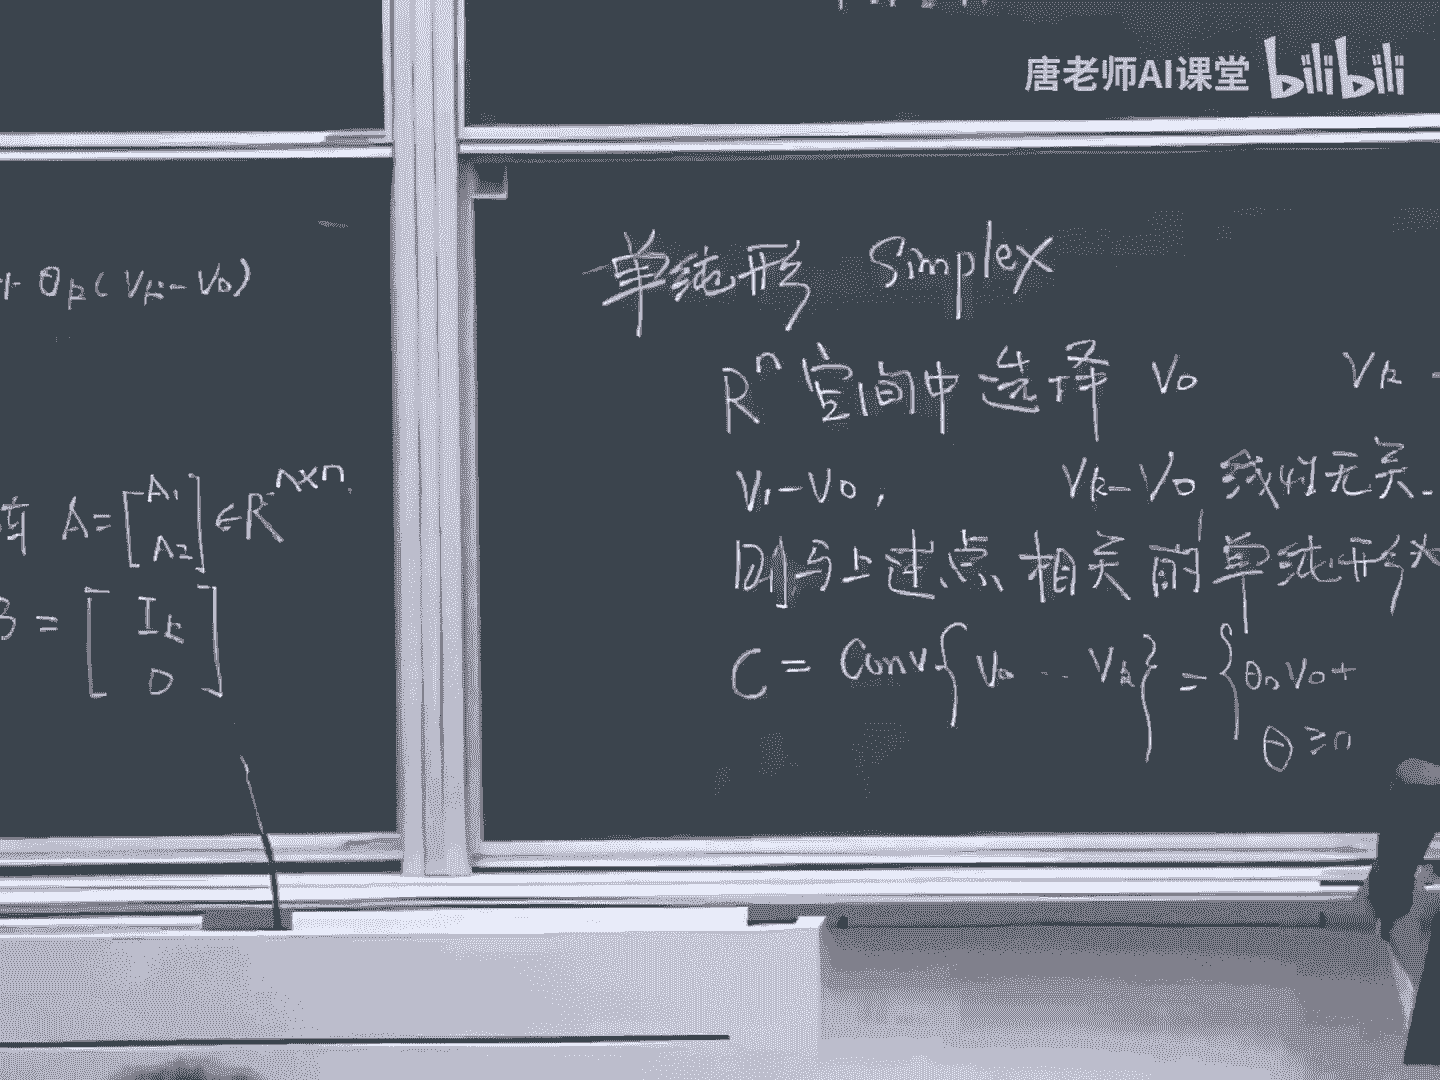 唐老师AI课堂 bilibili
+ θk(Vk-V0)
阵 A=[A1 A2]∈R^n×n
B = [Ik 0]
单纯形 Simplex
R^n 空间中选择 V0 Vk
V1-V0, Vk-V0 线性无关
则与上述点相关的单纯形为
C = Conv{V0 ... Vk} = {θ0V0+
θ≥0